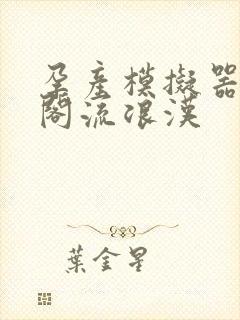 孕產模擬器
閣流浪漢
葉金星